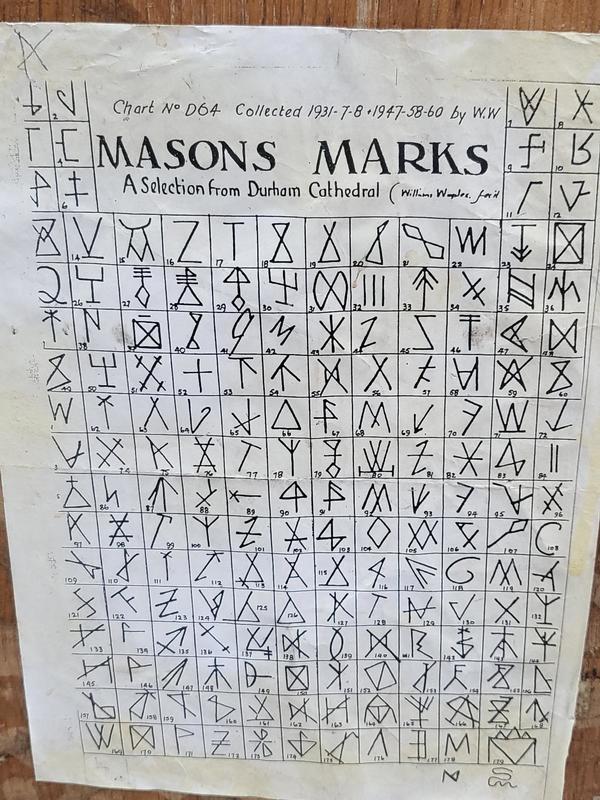 Chart No D64 Collected 1931-7-8 + 1947-58-60 by W.W
MASONS MARKS
A Selection from Durham Cathedral (William
2 7 8
4 9 10
6 11 12
14 15 16 17 18 19 20 21 22 23 24
26 27 28 29 30 31 32 33 34 35 36
38 39 40 41 42 43 44 45 46 47 48
49 50 51 52 53 54 55 56 57 58 59 60
62 63 64 65 66 67 68 69 70 71 72
74 75 76 77 78 79 80 81 82 83 84
86 87 88 89 90 91 92 93 94 95 96
97 98 99 100 101 102 103 104 105 106 107 108
109 110 111 112 113 114 115 116 117 118 119 120
121 122 123 124 125 126 127 128 129 130 131 132
133 134 135 136 137 138 139 140 141 142 143 144
145 146 147 148 149 150 151 152 153 154 155 156
157 158 159 160 161 162 163 164 165 166 167 168
169 170 171 172 173 174 175 176 177 178 179